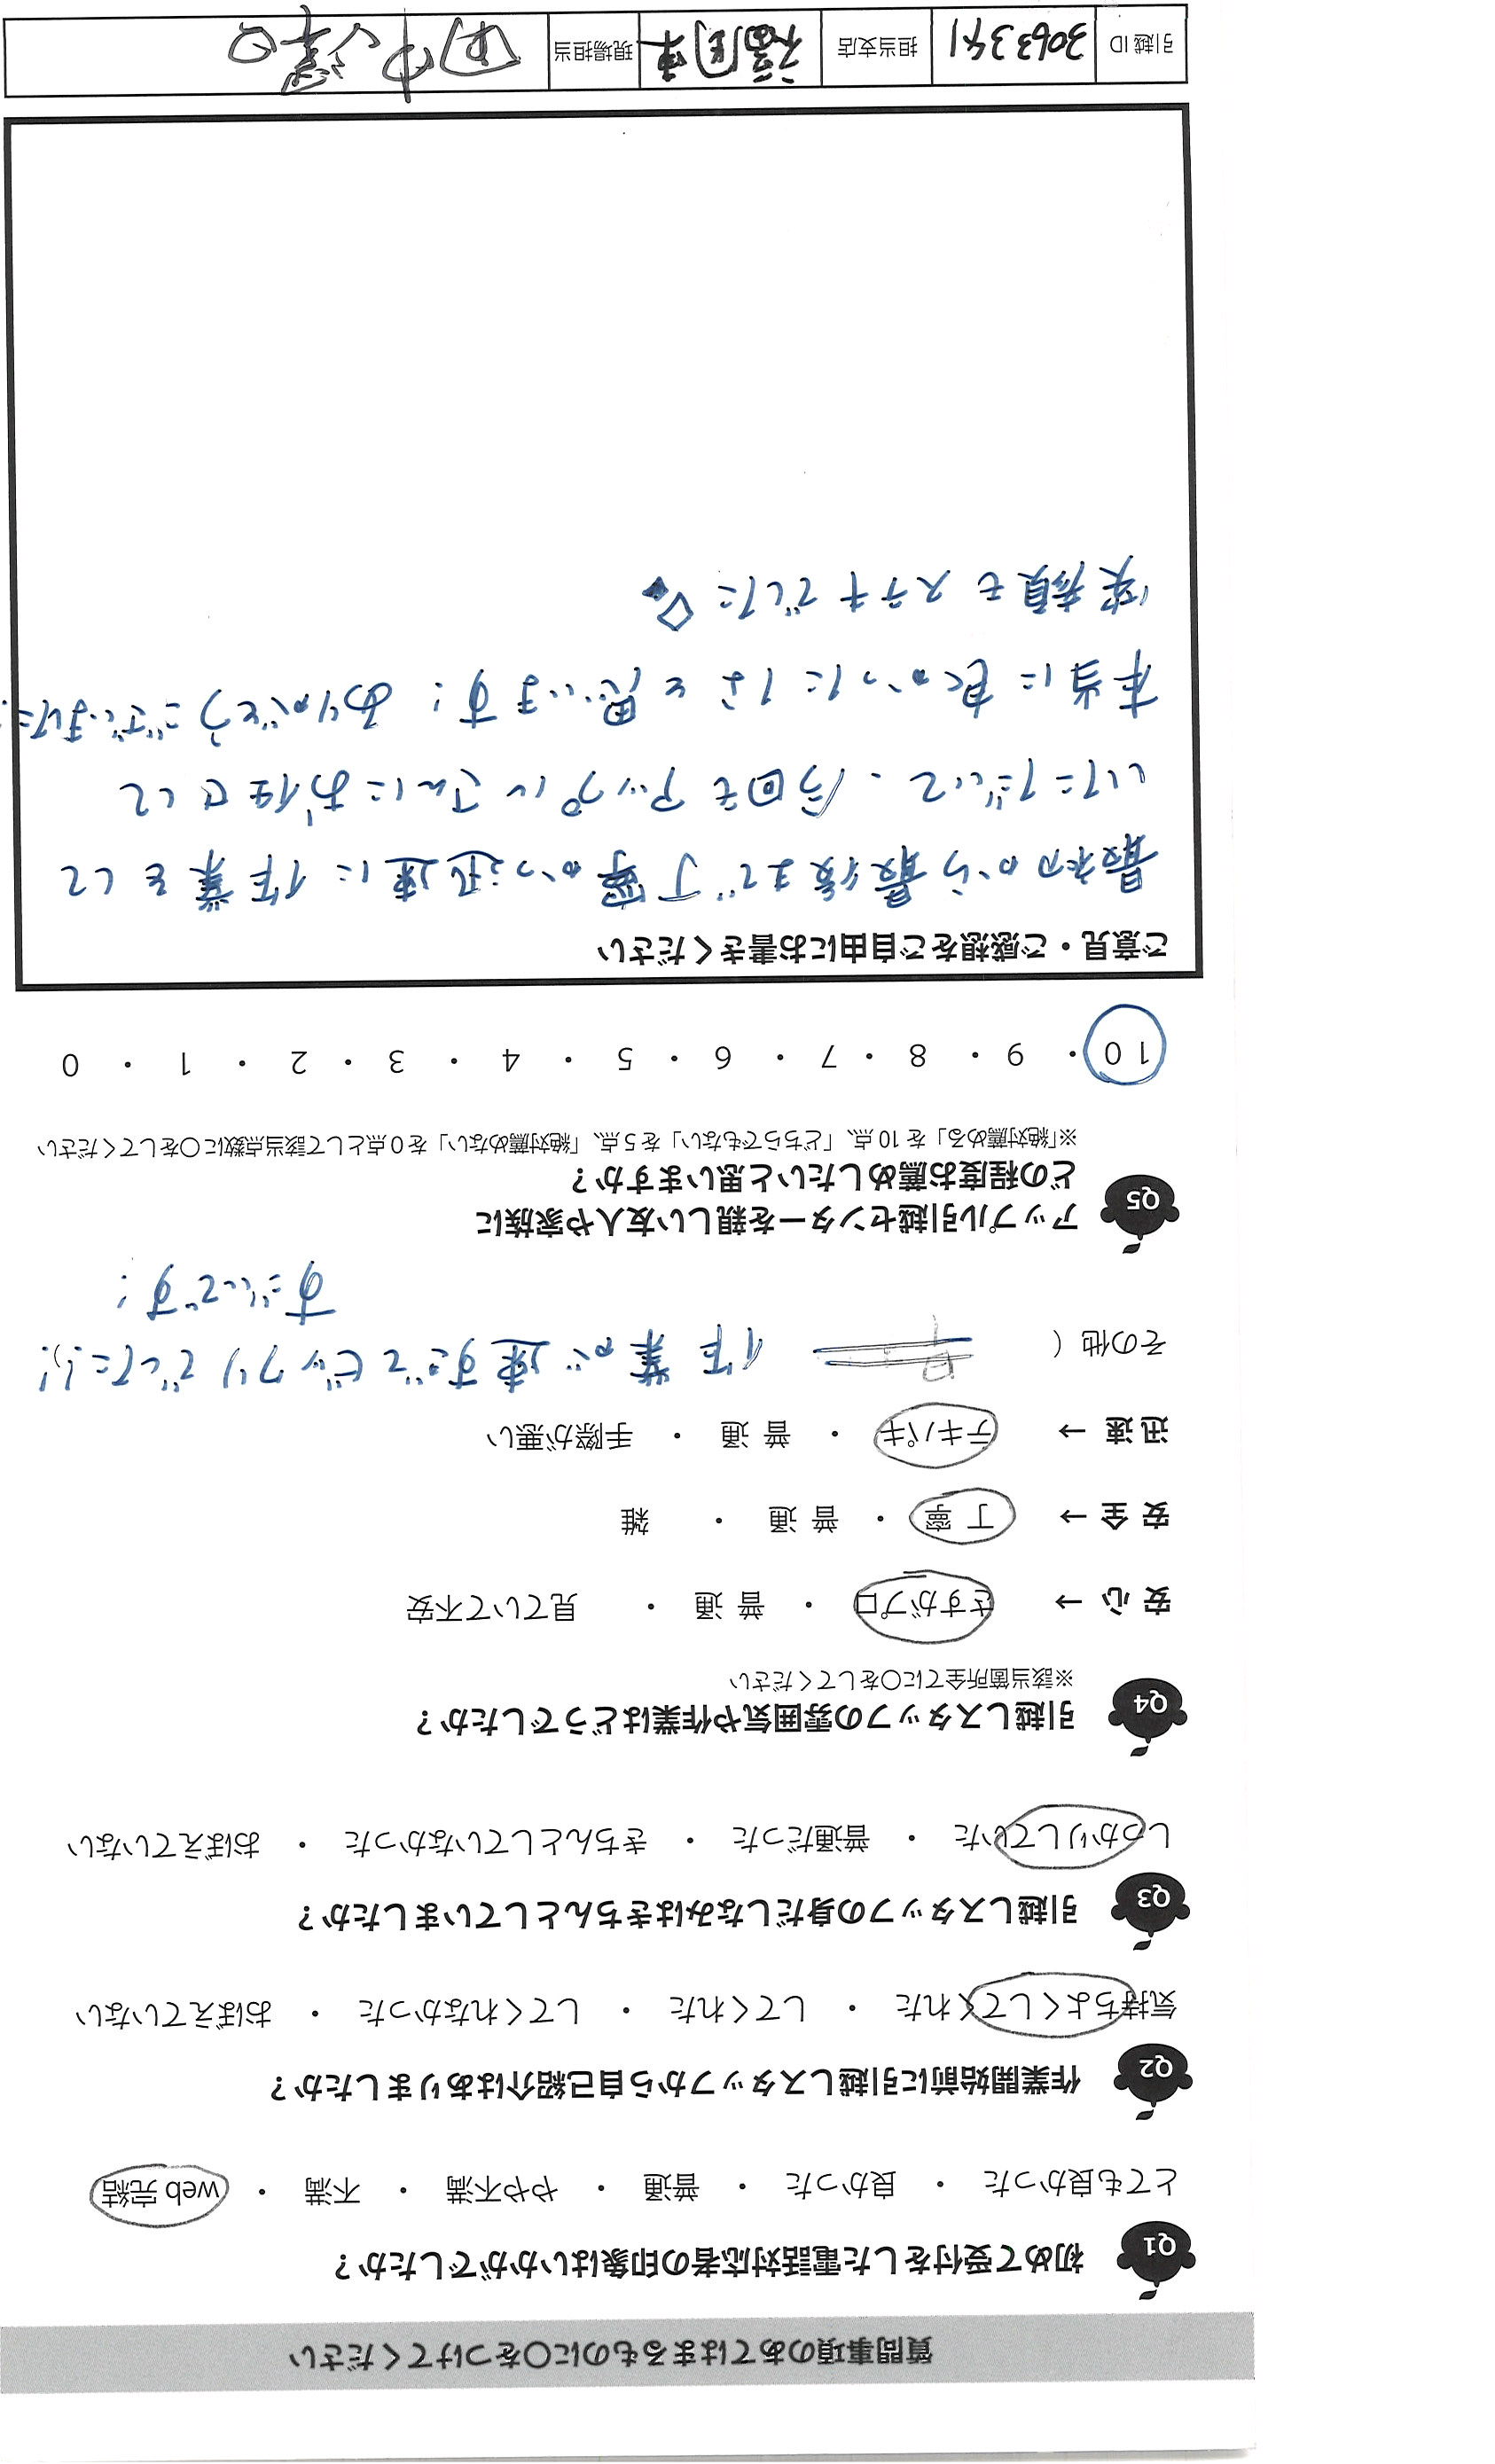 質問事項のあてはまるものに〇をつけてください
Q1 初めて受付をした電話対応者の印象はいかがでしたか？
とても良かった ・ 良かった ・ 普通 ・ やや不満 ・ 不満 ・ web 完結
Q2 作業開始前に引越しスタッフから自己紹介はありましたか？
気持ちよくしてくれた ・ してくれた ・ してくれなかった ・ おぼえていない
Q3 引越しスタッフの身だしなみはきちんとしていましたか？
しっかりしていた ・ 普通だった ・ きちんとしていなかった ・ おぼえていない
Q4 引越しスタッフの雰囲気や作業はどうでしたか？
※該当箇所全てに〇をしてください
安 心 → さすがプロ ・ 普 通 ・ 見ていて不安
安 全 → 丁 寧 ・ 普 通 ・ 雑
迅 速 → テキパキ ・ 普 通 ・ 手際が悪い
その他 ( 作業が速すぎてビックリでした!!
すごいです!
Q5 アップル引越センターを親しい友人や家族に
どの程度お薦めしたいと思いますか？
※「絶対薦める」を 10 点、「どちらでもない」を 5 点、「絶対薦めない」を 0 点として該当点数に〇をしてください
10 ・ 9 ・ 8 ・ 7 ・ 6 ・ 5 ・ 4 ・ 3 ・ 2 ・ 1 ・ 0
ご意見・ご感想をご自由にお書きください
最初から最後まで丁寧かつ迅速に作業をして
いただいて、今回もアップルさんにお任せして
本当に良かったなと思います! ありがとうございました!
笑顔もステキでした
引越 ID 担当支店 福岡東 現場担当 田中